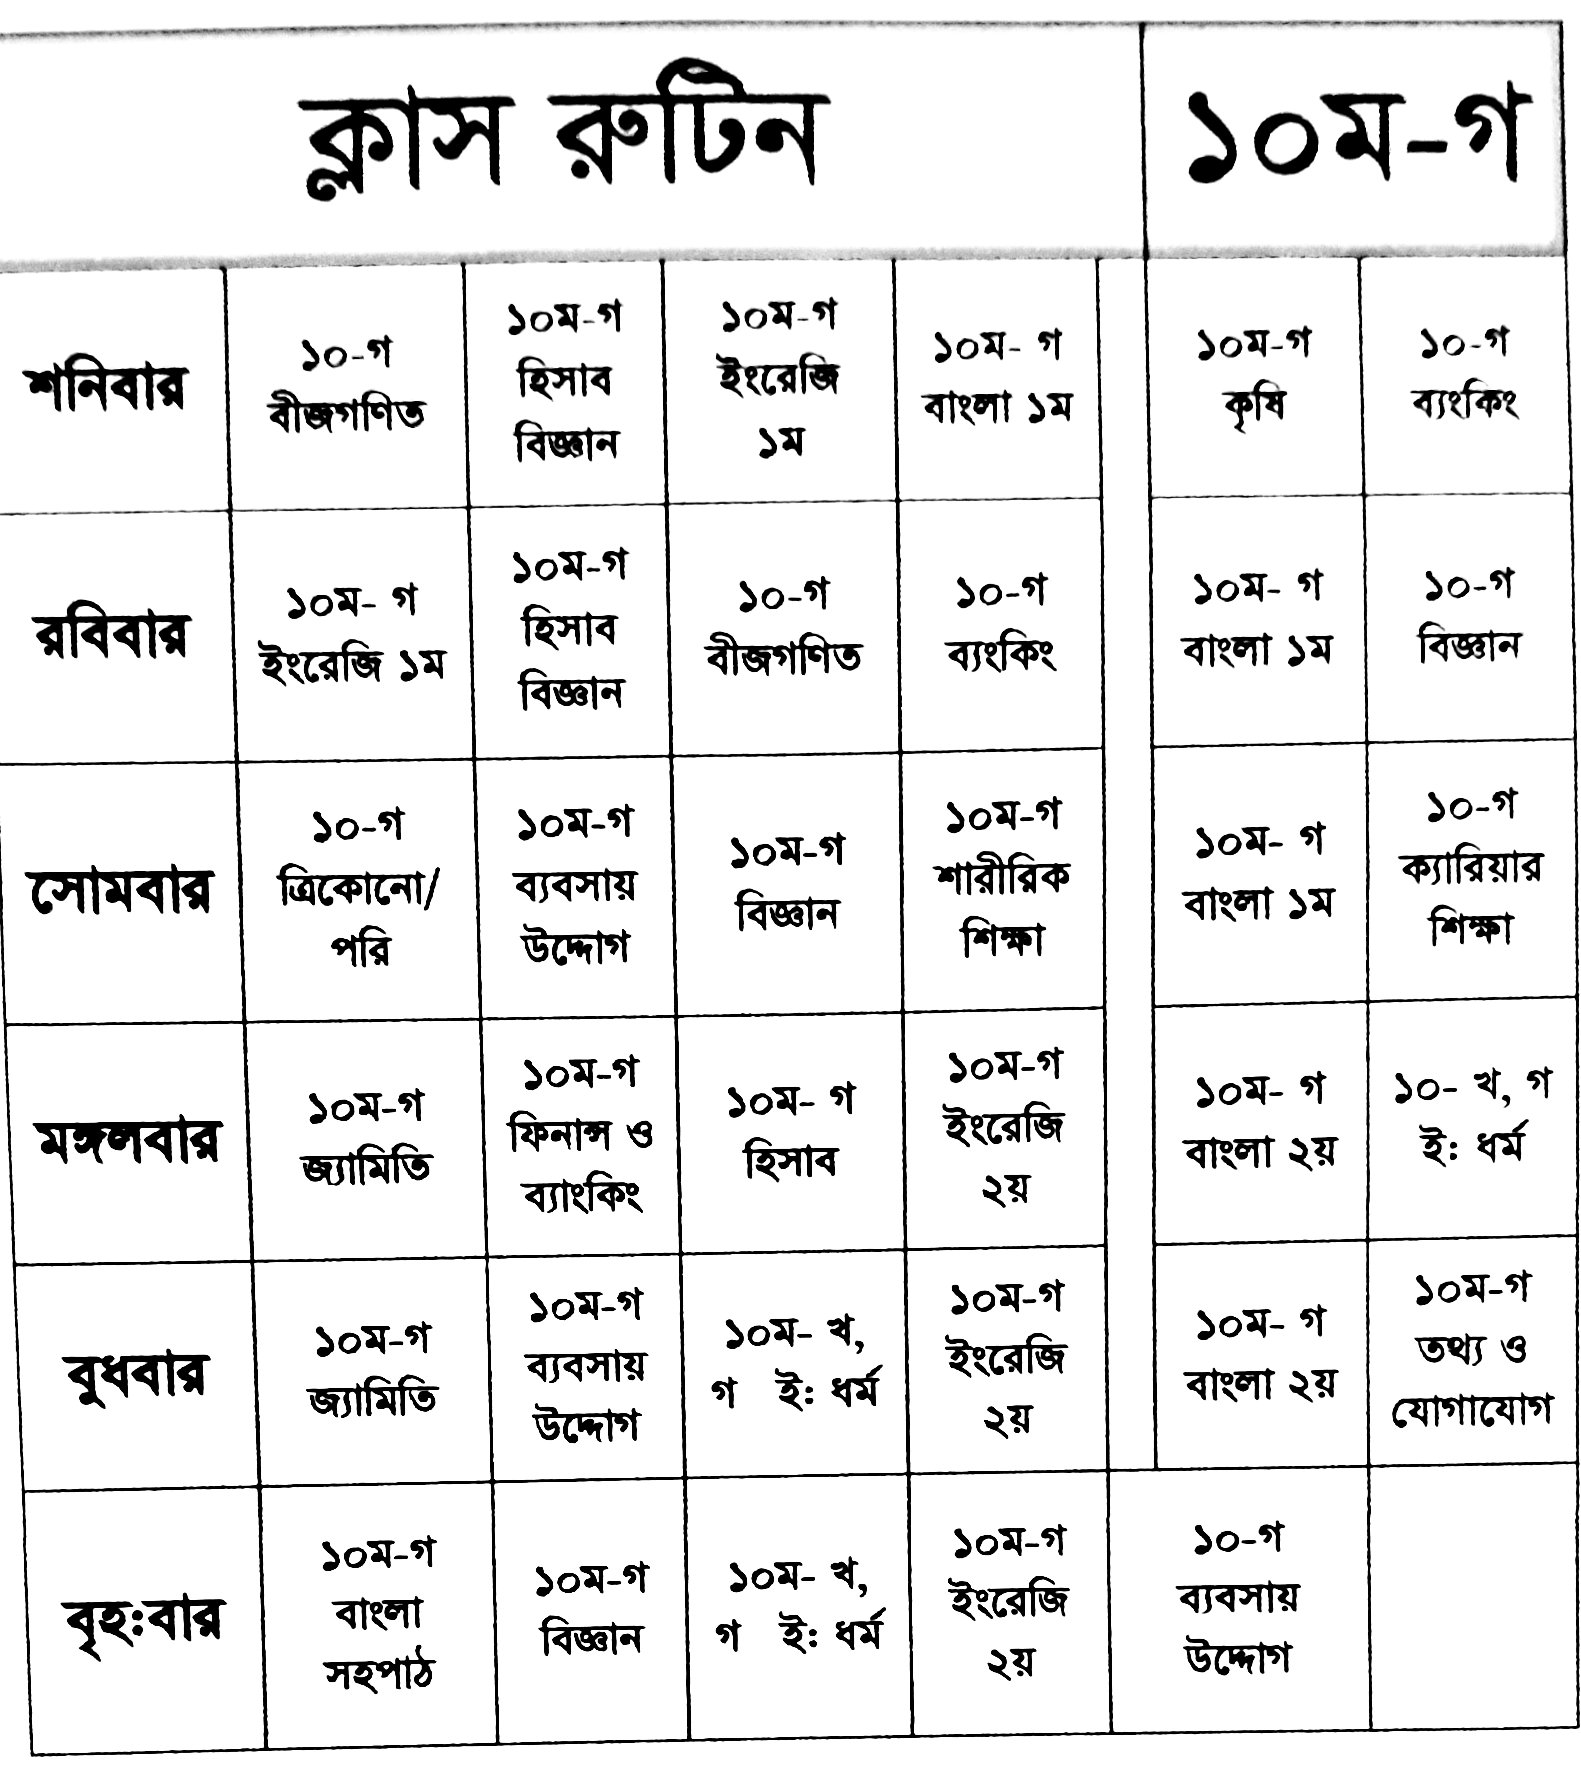 ক্লাস রুটিন
১০ম-গ
শনিবার
১০-গ
বীজগণিত
১০ম-গ
হিসাব
বিজ্ঞান
১০ম-গ
ইংরেজি
১ম
১০ম- গ
বাংলা ১ম
১০ম-গ
কৃষি
১০-গ
ব্যংকিং
রবিবার
১০ম- গ
ইংরেজি ১ম
১০ম-গ
হিসাব
বিজ্ঞান
১০-গ
বীজগণিত
১০-গ
ব্যংকিং
১০ম- গ
বাংলা ১ম
১০-গ
বিজ্ঞান
সোমবার
১০-গ
ত্রিকোনো/
পরি
১০ম-গ
ব্যবসায়
উদ্দোগ
১০ম-গ
বিজ্ঞান
১০ম-গ
শারীরিক
শিক্ষা
১০ম- গ
বাংলা ১ম
১০-গ
ক্যারিয়ার
শিক্ষা
মঙ্গলবার
১০ম-গ
জ্যামিতি
১০ম-গ
ফিনান্স ও
ব্যাংকিং
১০ম- গ
হিসাব
১০ম-গ
ইংরেজি
২য়
১০ম- গ
বাংলা ২য়
১০- খ, গ
ই: ধর্ম
বুধবার
১০ম-গ
জ্যামিতি
১০ম-গ
ব্যবসায়
উদ্দোগ
১০ম- খ,
গ ই: ধর্ম
১০ম-গ
ইংরেজি
২য়
১০ম- গ
বাংলা ২য়
১০ম-গ
তথ্য ও
যোগাযোগ
বৃহ:বার
১০ম-গ
বাংলা
সহপাঠ
১০ম-গ
বিজ্ঞান
১০ম- খ,
গ ই: ধর্ম
১০ম-গ
ইংরেজি
২য়
১০-গ
ব্যবসায়
উদ্দোগ